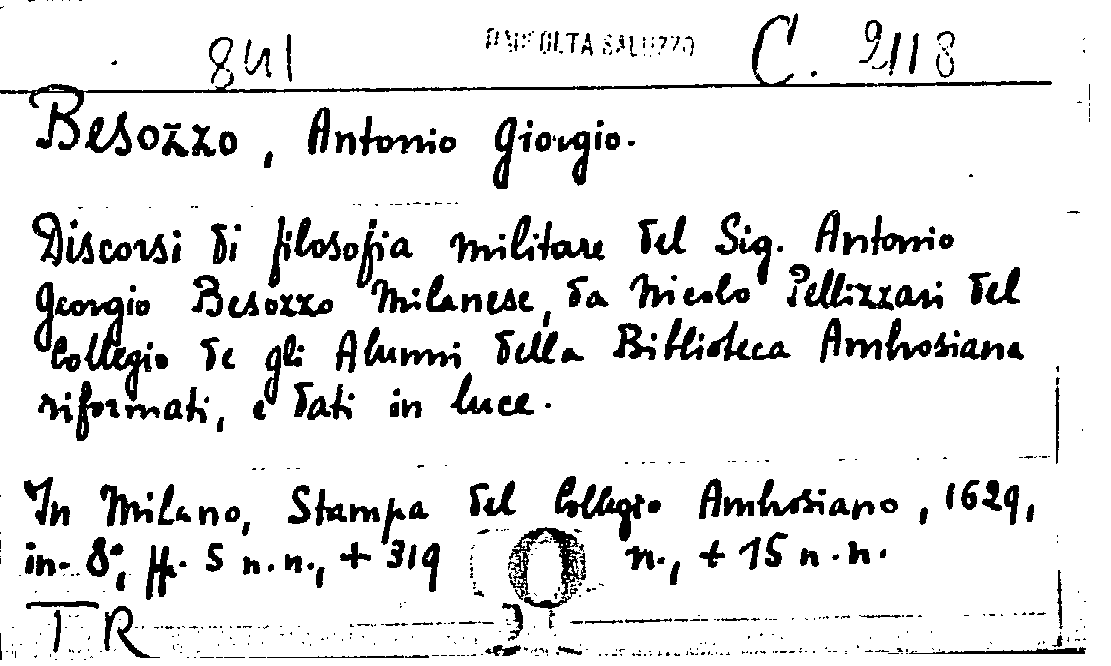 841 RACCOLTA SALUZZO C. 2118
Besozzo, Antonio Giorgio.
Discorsi di filosofia militare del Sig. Antonio
Georgio Besozzo Milanese, da Nicolo Pellizzari del
Collegio de gli Alunni della Biblioteca Ambrosiana
riformati, e dati in luce.
In Milano, Stampa del Collegio Ambrosiano, 1629,
in-8°, ff. 5 n.n., + 319 n., + 15 n.n.
TR